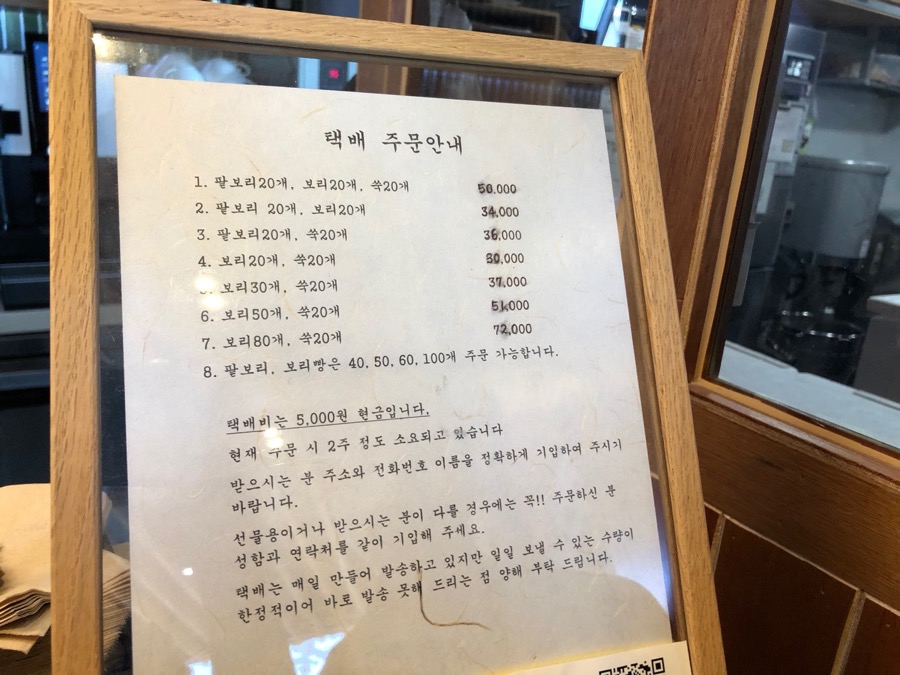 택배 주문안내
1. 팥보리20개, 보리20개, 쑥20개 50,000
2. 팥보리 20개, 보리20개 34,000
3. 팥보리20개, 쑥20개 36,000
4. 보리20개, 쑥20개 30,000
보리30개, 쑥20개 37,000
6. 보리50개, 쑥20개 51,000
7. 보리80개, 쑥20개 72,000
8. 팥보리, 보리빵은 40, 50, 60, 100개 주문 가능합니다.
택배비는 5,000원 현금입니다.
현재 주문 시 2주 정도 소요되고 있습니다
받으시는 분 주소와 전화번호 이름을 정확하게 기입하여 주시기
바랍니다.
선물용이거나 받으시는 분이 다를 경우에는 꼭!! 주문하신 분
성함과 연락처를 같이 기입해 주세요.
택배는 매일 만들어 발송하고 있지만 일일 보낼 수 있는 수량이
한정적이어 바로 발송 못해 드리는 점 양해 부탁 드립니다.